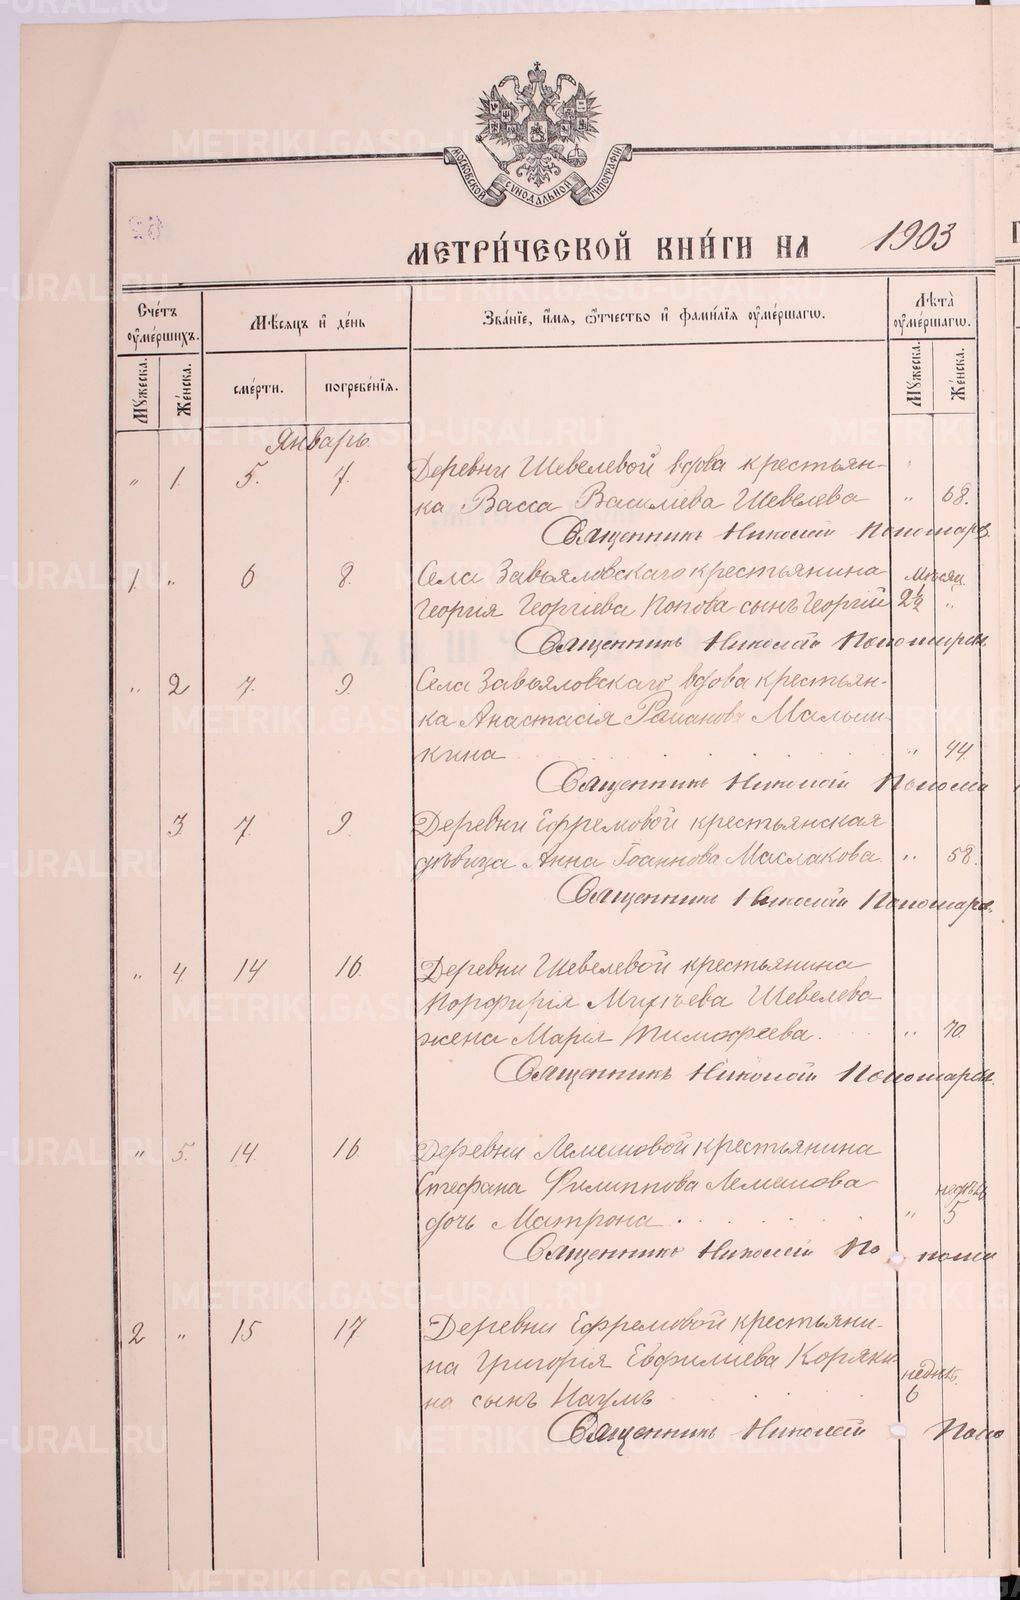 МОСКОВСКОЙ СѴНОДАЛЬНОЙ ТИПОГРАФІИ
МЕТРИ́ЧЕСКОЙ КНИ́ГИ НА 1903
Сче́тъ оу҆ме́ршихъ.
Мѣсяцъ и҆ де́нь
Зва́нїе, и҆́мя, ѻ҆́тчество и҆ фами́лїя оу҆ме́ршагѡ.
Лѣта̀ оу҆ме́ршагѡ.
Мꙋжеска.
Же́нска.
сме́рти.
погребе́нїя.
Мꙋжеска
Же́нска.
Январь
" 1. 5. 7. Деревни Шевелевой вдова крестьян-
ка Васса Васильева Шевелева " 68.
Священникъ Николай Пономарев
1. " 6 8. Села Завьяловскаго крестьянина Мѣсяц.
Георгія Георгіева Попова сынъ Георгій 2½ "
Священникъ Николай Пономарев
" 2 7. 9. Села Завьяловскаго вдова крестьян-
ка Анастасія Романова Малыш-
кина " 44.
Священникъ Николай Понома
3 7. 9. Деревни Ефремовой крестьянская
дѣвица Анна Іоаннова Маслакова. " 58.
Священникъ Николай Пономарев
" 4. 14 16. Деревни Шевелевой крестьянина
Порфирія Михѣева Шевелева
жена Марія Тимофеева. " 70.
Священникъ Николай Пономарев
" 5. 14. 16. Деревни Лемешовой крестьянина
Стефана Филиппова Лемешова недѣль
дочь Матрона. " 5
Священникъ Николай Понома
2 " 15 17 Деревни Ефремовой крестьяни-
на Григорія Евфиміева Коряки- недѣль.
на сынъ Наумъ 6
Священникъ Николай Поно